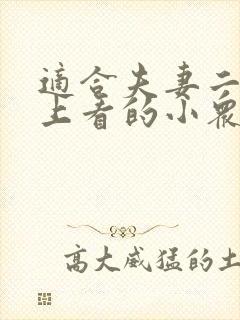 適合夫妻二
上看的小眾
高大威猛的土